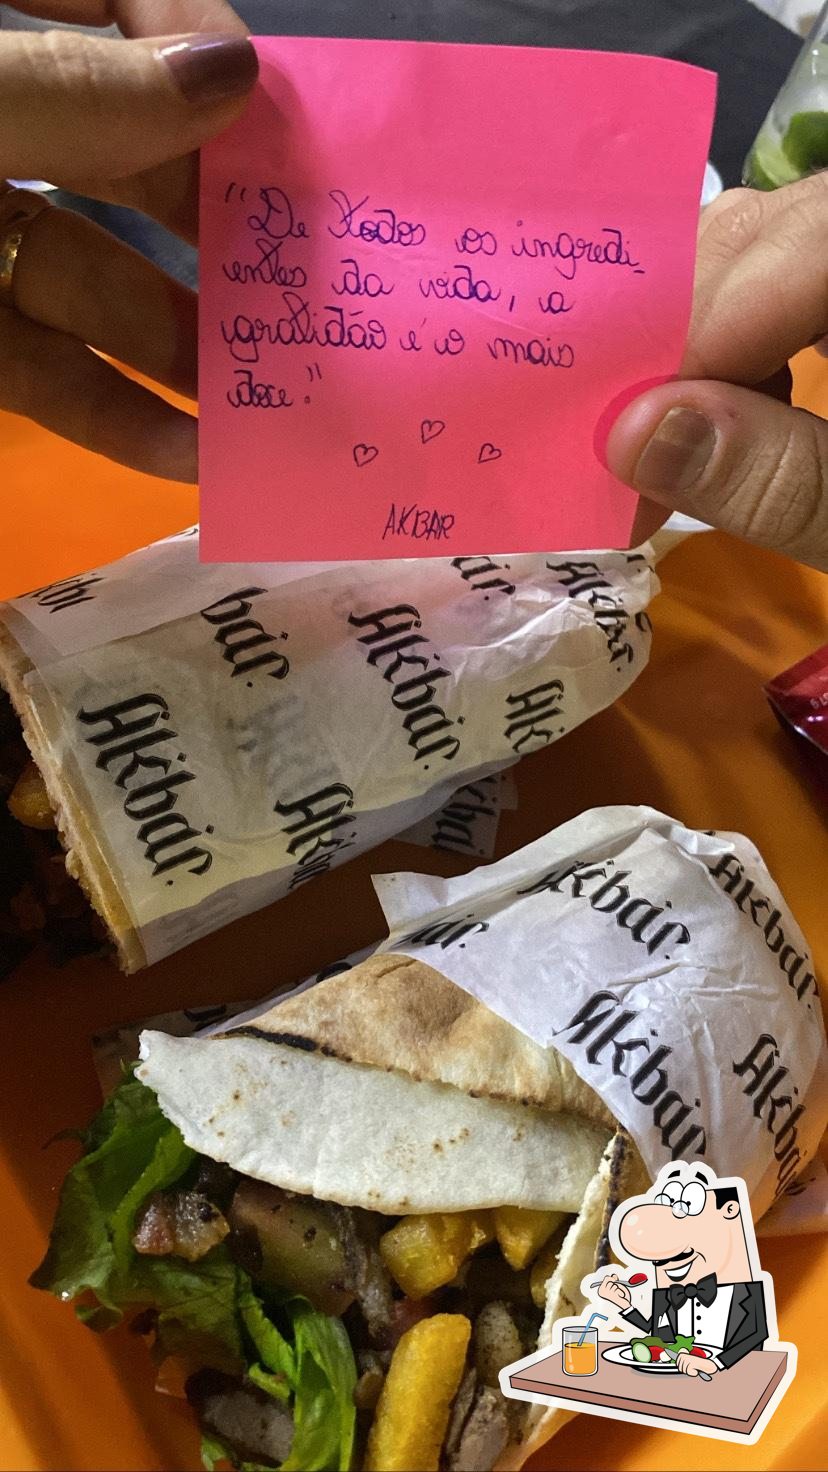 "De todos os ingredi_
entes da vida, a
gratidão é o mais
doce."
AKBAR
Akbar.
bar.
Akbar.
Akbar.
Akbar.
Akbar.
Akbar.
Akbar.
Akbar.